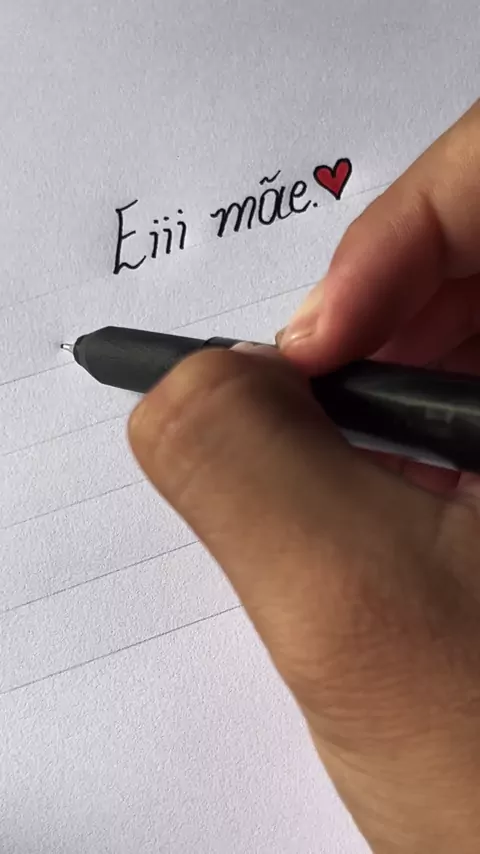 Eiii mãe.❤️